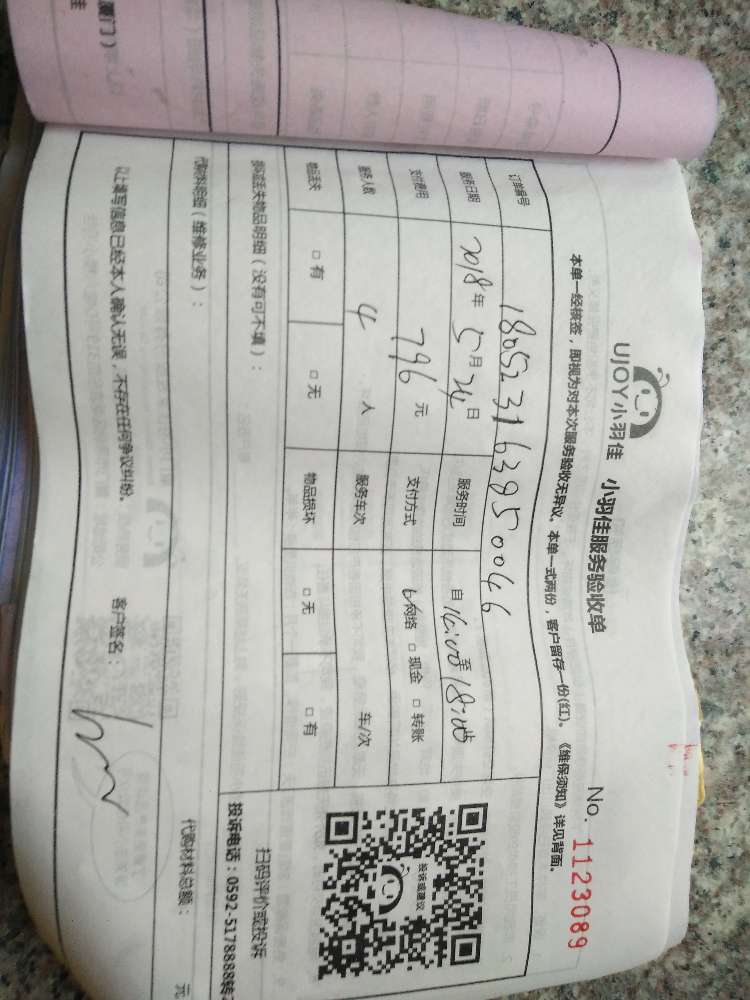 UJOY小羽佳 小羽佳服务验收单 No. 1123089
本单一经核签，即视为对本次服务验收无异议。本单一式两份，客户留存一份(红)。《维保须知》详见背面。
订单编号 180523163850046
服务日期 2018年5月24日 服务时间 自14:00至18:00
支付费用 796元 支付方式 网络 □ 现金 □ 转账
服务人数 4人 服务车次 车/次
物品丢失 □ 有 □ 无 物品损坏 □ 无 □ 有
投诉或建议
扫码评价或投诉
投诉电话：0592-5178888转
损坏丢失物品明细（没有可不填）：
代购材料明细（维修业务）：
代购材料总额： 元
以上填写信息已经本人确认无误，不存在任何争议纠纷。
客户签名：